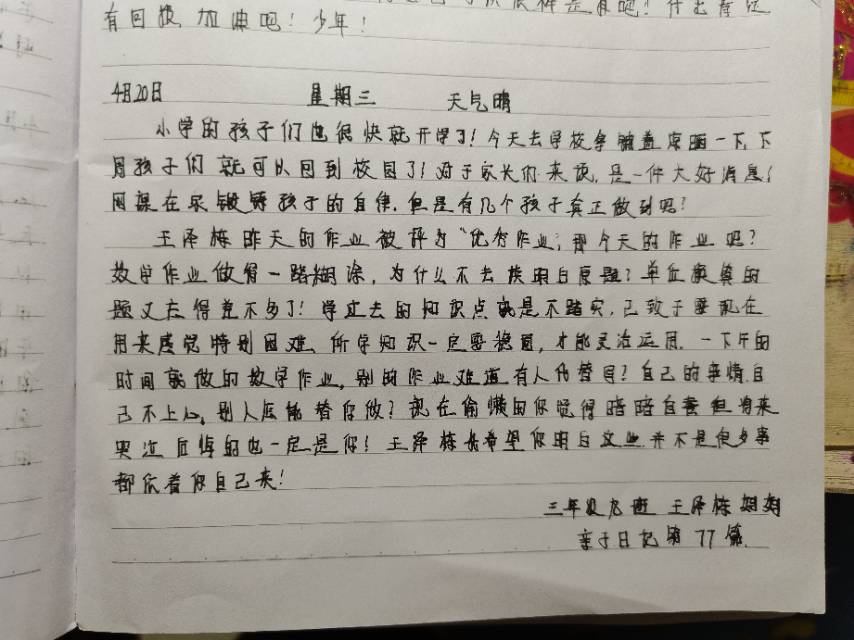 有回报, 加油吧! 少年!
4月20日 星期三 天气晴
小学的孩子们也很快就开学了! 今天去学校 一下, 下
周孩子们就可以回到校园了! 对于家长们来说, 是一件大好消息!
网课在家锻炼孩子的自律, 但是有几个孩子真正做到呢?
王泽栋昨天的作业被评为“优秀作业”, 那今天的作业呢?
数学作业做得一路糊涂, 为什么不去读明白原题? 单位换算的
题又忘得差不多了! 学过去的知识点就是不踏实, 已致于要现在
用来感觉特别困难, 所学知识一定要稳固, 才能灵活运用. 一下午的
时间就做的数学作业, 别的作业难道有人代替写? 自己的事情自
己不上心, 别人底能替你做? 现在偷懒的你觉得暗暗自喜但将来
哭泣后悔的也一定是你! 王泽栋我希望你明白这些并不是很多事
都依着你自己来!
三年级九班 王泽栋妈妈
亲子日记第77篇.